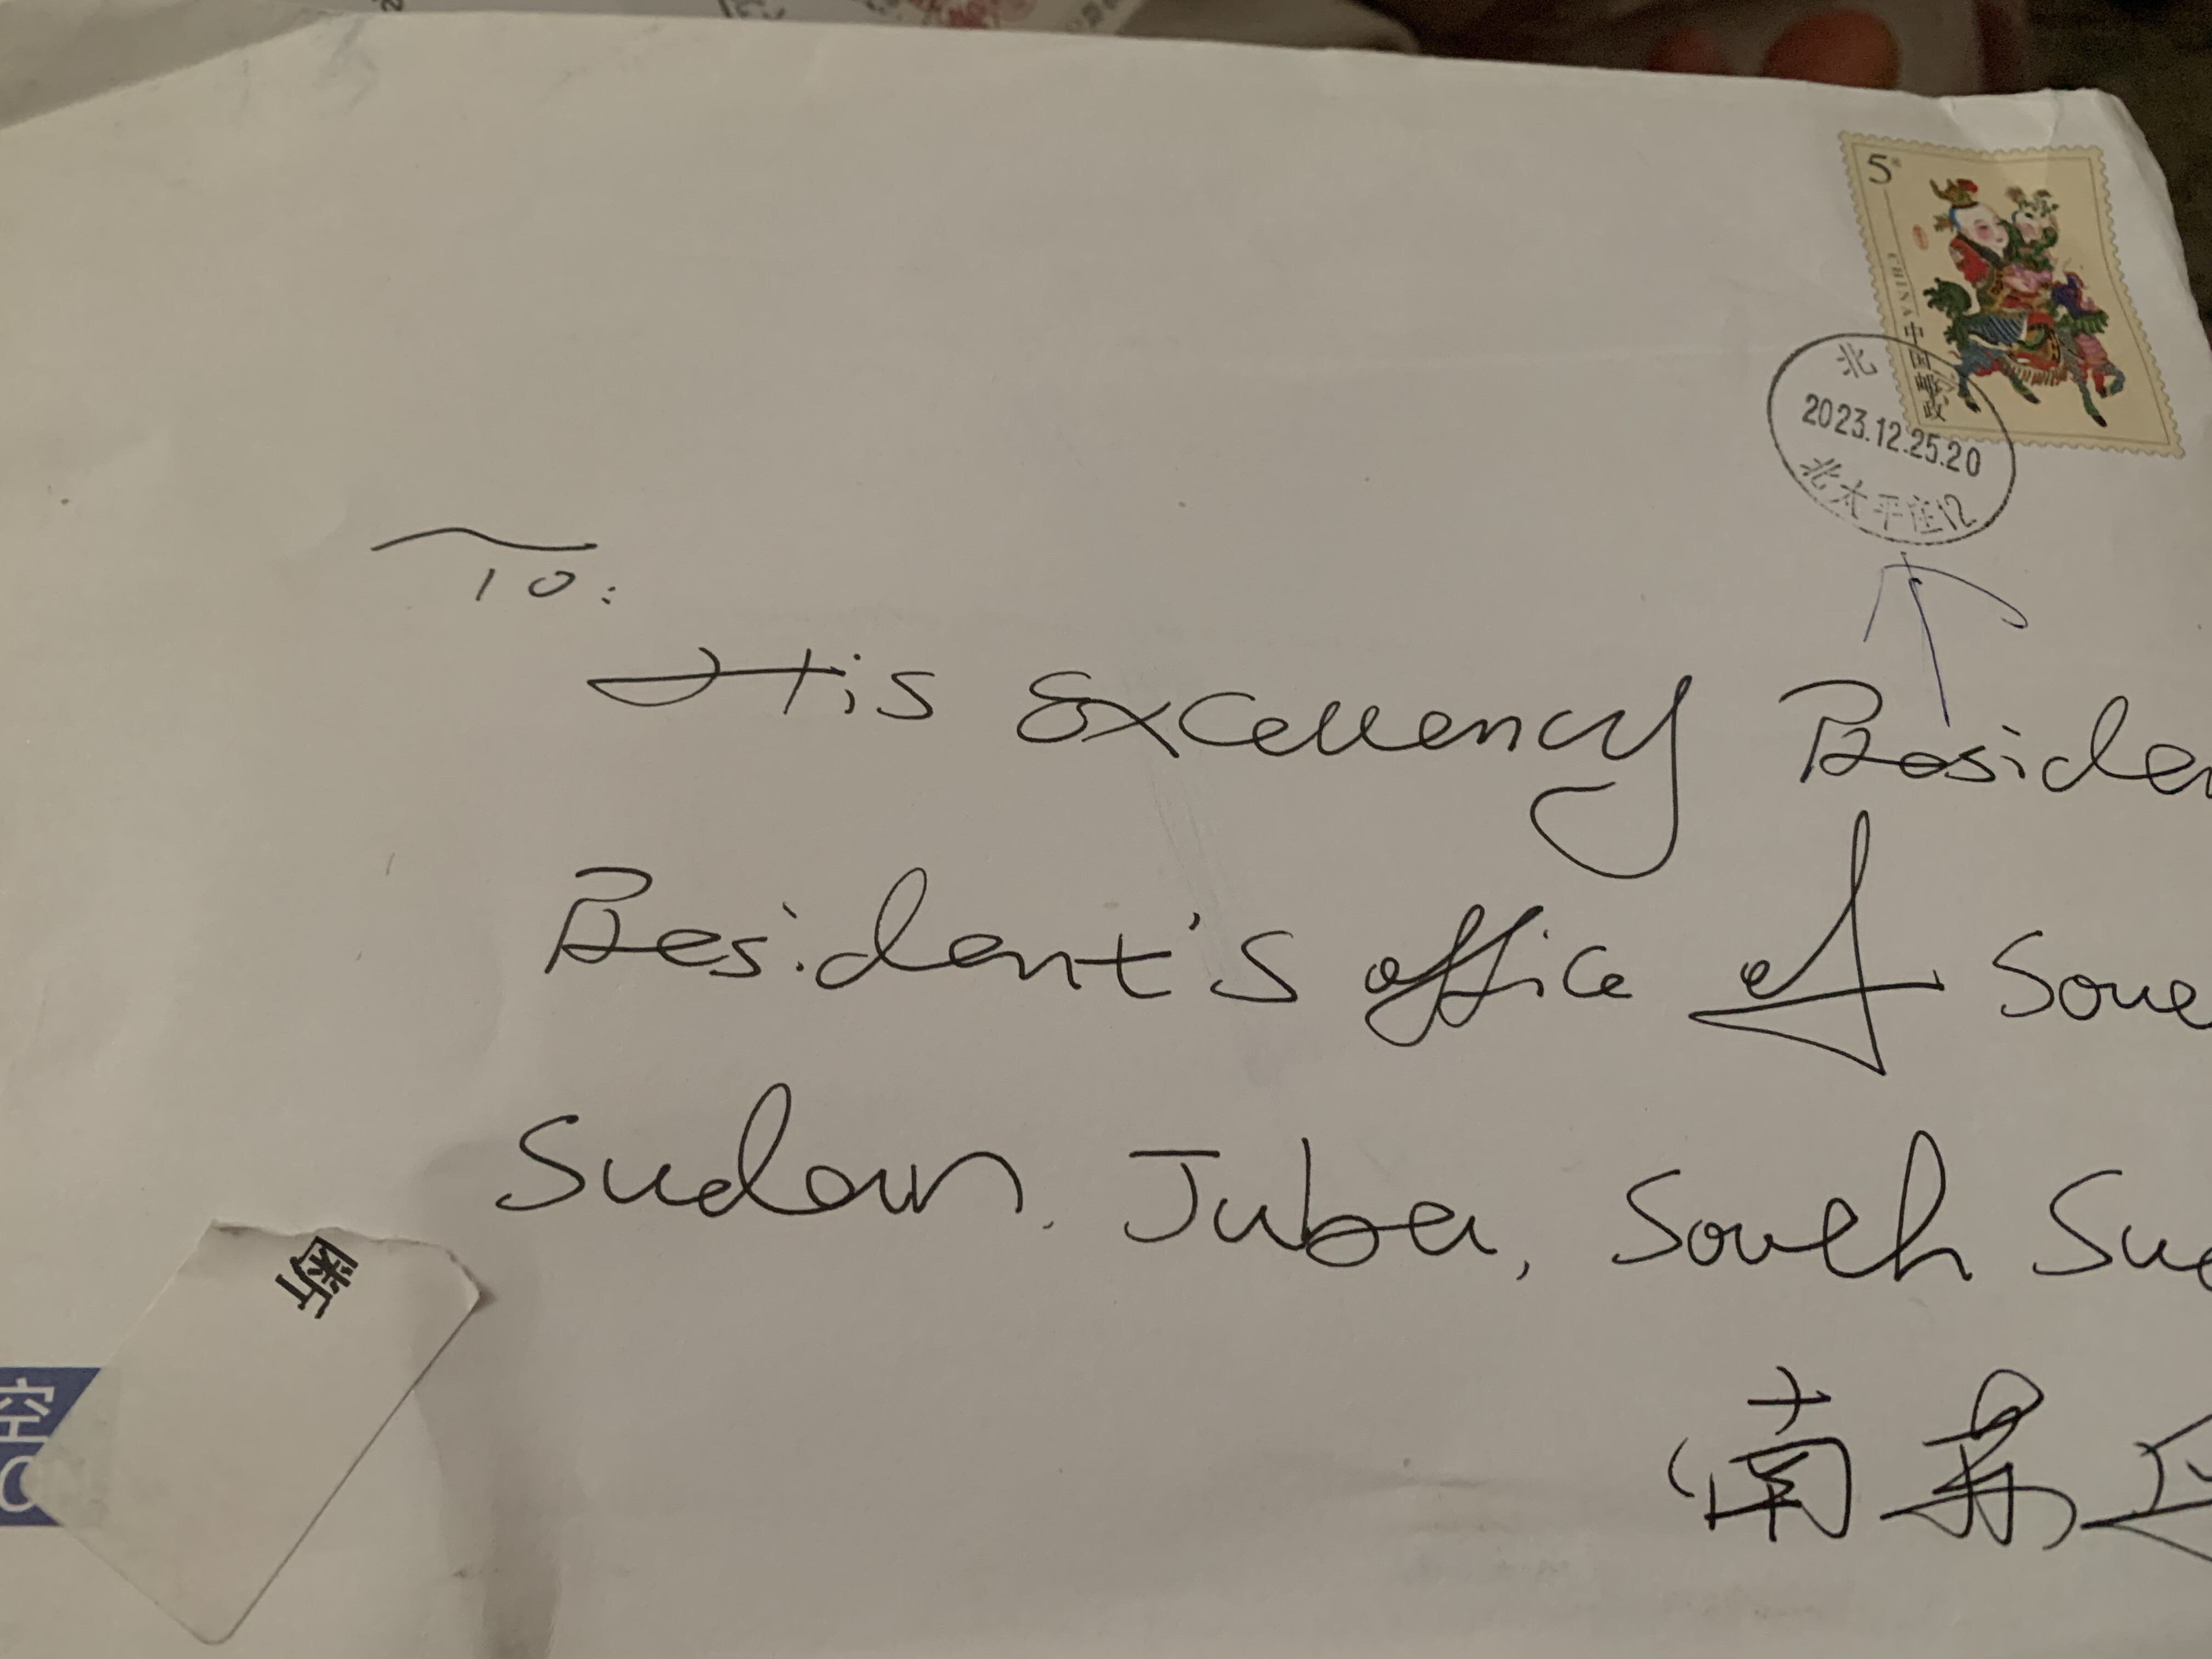 5元
CHINA 中国邮政
北
2023.12.25.20
北太平庄12
To:
His Excellency Presiden
President's office of Sou
Sudan. Juba, South Su
断
空
(南苏